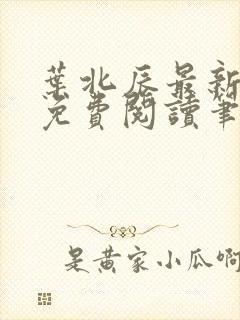 葉北辰最新
免費閱讀筆
是黃家小瓜啊